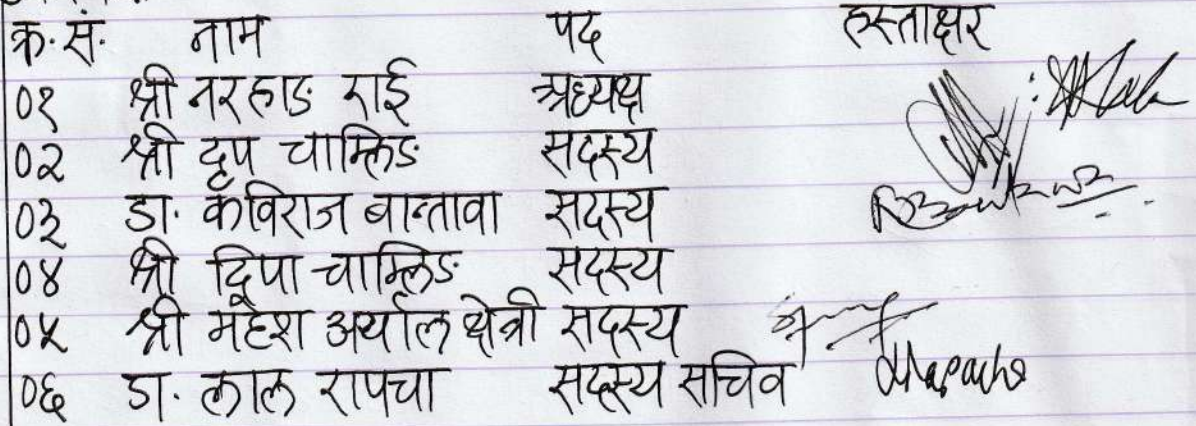 क्र.सं. नाम पद हस्ताक्षर
०१ श्री नरहाङ राई अध्यक्ष
०२ श्री दृप चाम्लिङ सदस्य
०३ डा. कविराज बान्तावा सदस्य
०४ श्री दिपा चाम्लिङ सदस्य
०५ श्री महेश अर्याल क्षेत्री सदस्य
०६ डा. लाल रापचा सदस्य सचिव